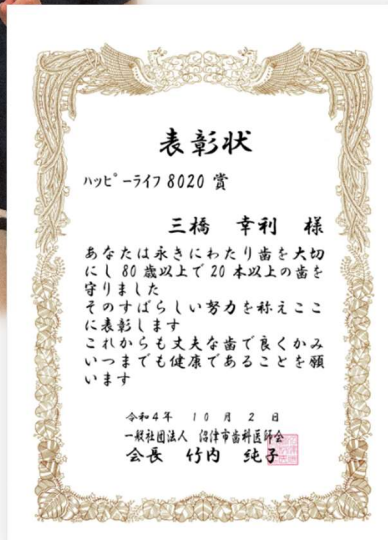 表彰状
ハッピーライフ 8020 賞
三橋 幸利 様
あなたは永きにわたり歯を大切
にし 80 歳以上で 20 本以上の歯を
守りました
そのすばらしい努力を称えここ
に表彰します
これからも丈夫な歯で良くかみ
いつまでも健康であることを願
います
令和4年 10月2日
一般社団法人 沼津市歯科医師会
会長 竹内 純子